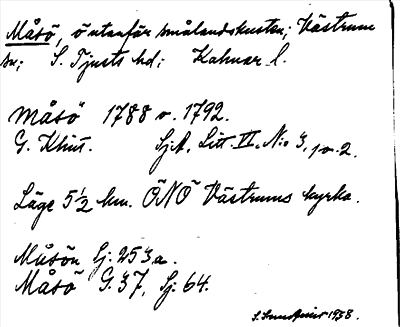 Måsö, ö utanför smålandskusten; Västrum
sn; S. Tjusts hd; Kalmar l.
Måsö 1788 o. 1792.
G. Klint. Sjk. Litt. VI. N:o 3, 2.
Läge 5½ km. ÖNÖ Västrums kyrka.
Måsön Gj. 253 a.
Måsö G. 37, Sj. 64.
1938.